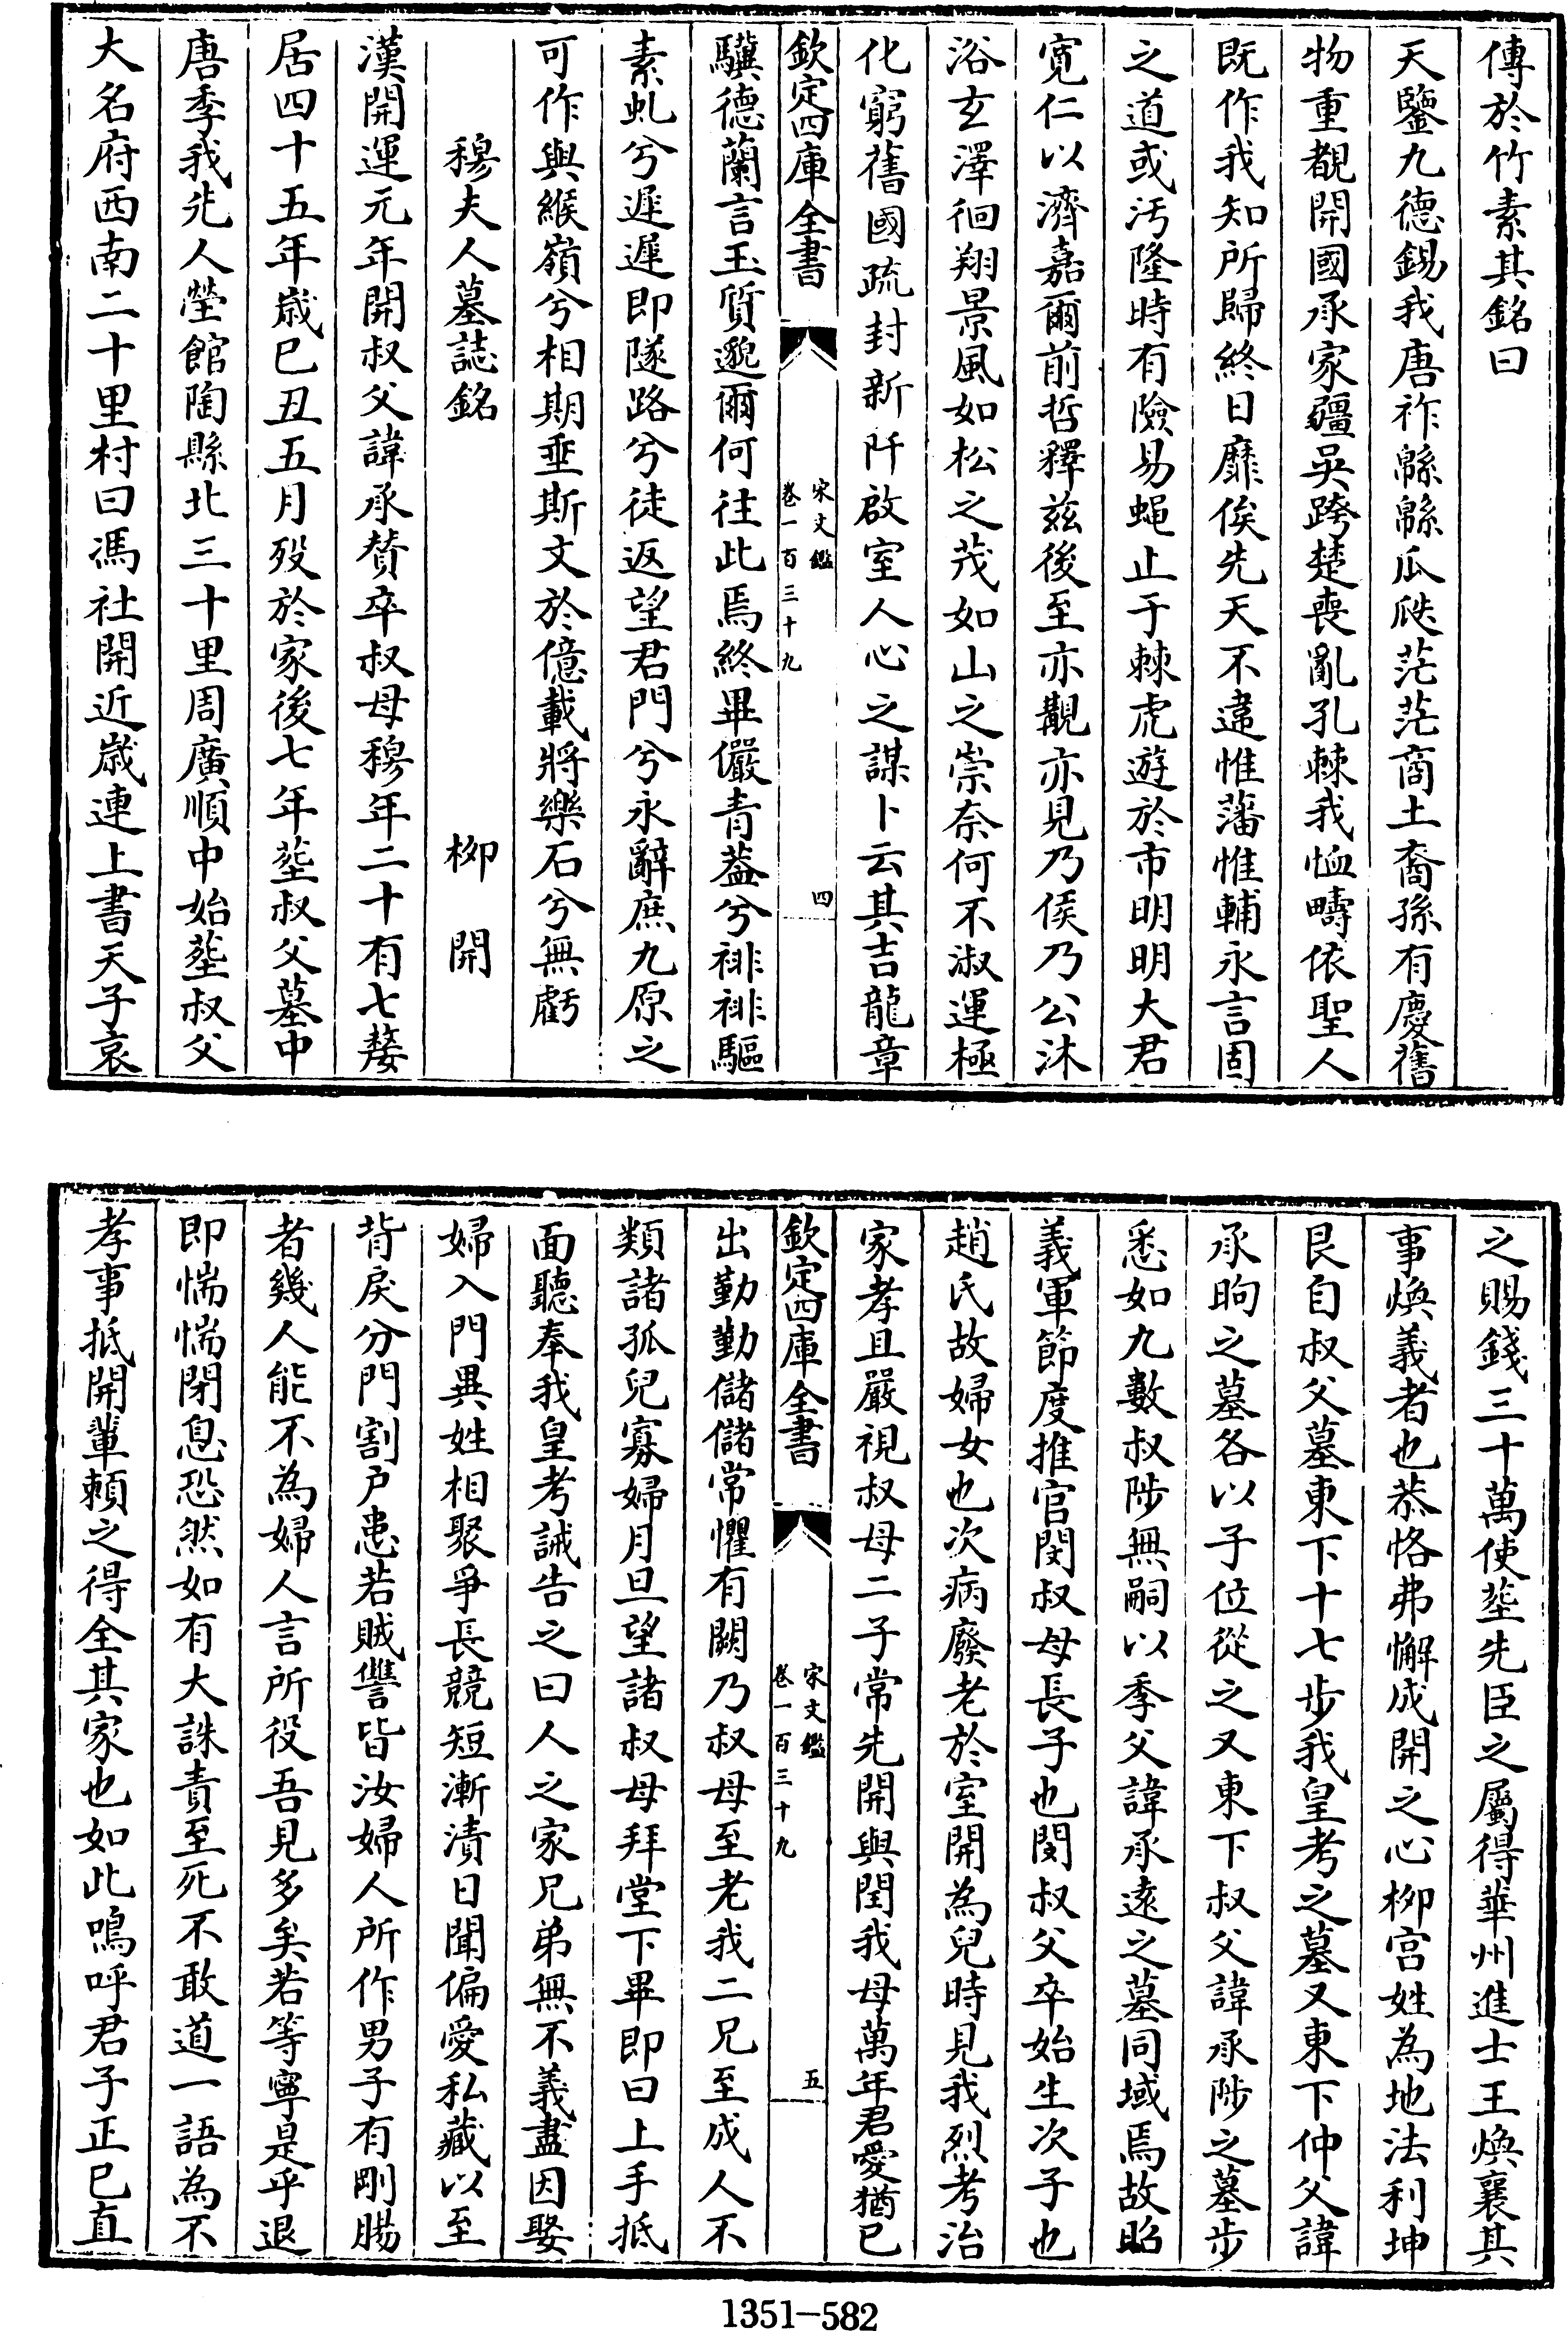 傳於竹素其銘曰
天鑒九德錫我唐祚緜緜瓜瓞茫茫商土裔孫有慶舊
物重覩開國承家疆吳跨楚喪亂孔棘我恤疇依聖人
既作我知所歸終日靡俟先天不違惟藩惟輔永言固
之道或汚隆時有險易蠅止于棘虎遊於市明明大君
寛仁以濟嘉爾前哲釋兹後至亦覯亦見乃侯乃公沐
浴玄澤徊翔景風如松之茂如山之崇奈何不淑運極
化窮舊國疏封新阡啟室人心之謀卜云其吉龍章
欽定四庫全書
宋文鑑
卷一百三十九
四
驥德蘭言玉質邈爾何往此焉終畢儼青葢兮裶裶驅
素虬兮遲遲即隧路兮徒返望君門兮永辭庶九原之
可作與緱嶺兮相期垂斯文於億載將樂石兮無虧
穆夫人墓誌銘
柳開
漢開運元年開叔父諱承贊卒叔母穆年二十有七嫠
居四十五年嵗己丑五月歿於家後七年塟叔父墓中
唐季我先人塋館陶縣北三十里周廣順中始塟叔父
大名府西南二十里村曰馮社開近嵗連上書天子哀
之賜錢三十萬使塟先臣之屬得華州進士王煥襄其
事煥義者也恭恪弗懈成開之心柳宫姓為地法利坤
艮自叔父墓東下十七步我皇考之墓又東下仲父諱
承昫之墓各以子位從之又東下叔父諱承陟之墓步
悉如九數叔陟無嗣以季父諱承遠之墓同域焉故昭
義軍節度推官閔叔母長子也閔叔父卒始生次子也
趙氏故婦女也次病廢老於室開為兒時見我烈考治
家孝且嚴視叔母二子常先開與閏我母萬年君愛猶己
欽定四庫全書
宋文鑑
卷一百三十九
五
出勤勤儲儲常懼有闕乃叔母至老我二兄至成人不
類諸孤兒寡婦月旦望諸叔母拜堂下畢即曰上手抵
面聽奉我皇考誡告之曰人之家兄弟無不義盡因娶
婦入門異姓相聚爭長競短漸漬日聞偏愛私藏以至
背戾分門割户患若賊讐皆汝婦人所作男子有剛腸
者幾人能不為婦人言所役吾見多矣若等寧是乎退
即惴惴閉息恐然如有大誅責至死不敢道一語為不
孝事抵開輩頼之得全其家也如此嗚呼君子正己直
1351—582